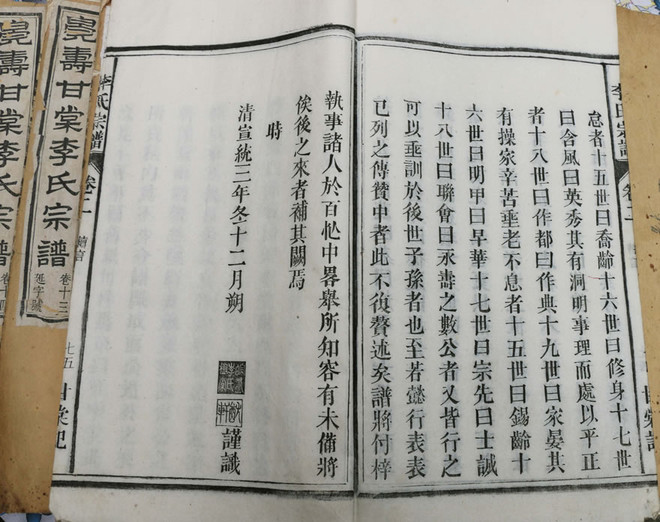 李氏宗譜
卷二
怠者十五世曰喬齡十六世曰修身十七世
曰含風曰英秀其有洞明事理而處以平正
者十八世曰作都曰作典十九世曰家晏其
有操家辛苦垂老不息者十五世曰錫齡十
六世曰明甲曰早華十七世曰宗先曰士誠
十八世曰聯會曰永壽之數公者又皆行之
可以垂訓於後世子孫者也至若懿行表表
已列之傳贊中者此不復贅述矣譜將付梓
執事諸人於百忙中畧舉所知容有未備將
俟後之來者補其闕焉
時
清宣統三年冬十二月朔
謹識
李氏宗譜
卷二
七五
甘棠祀
壽甘棠李氏宗譜
卷十三
壽甘棠李氏宗譜